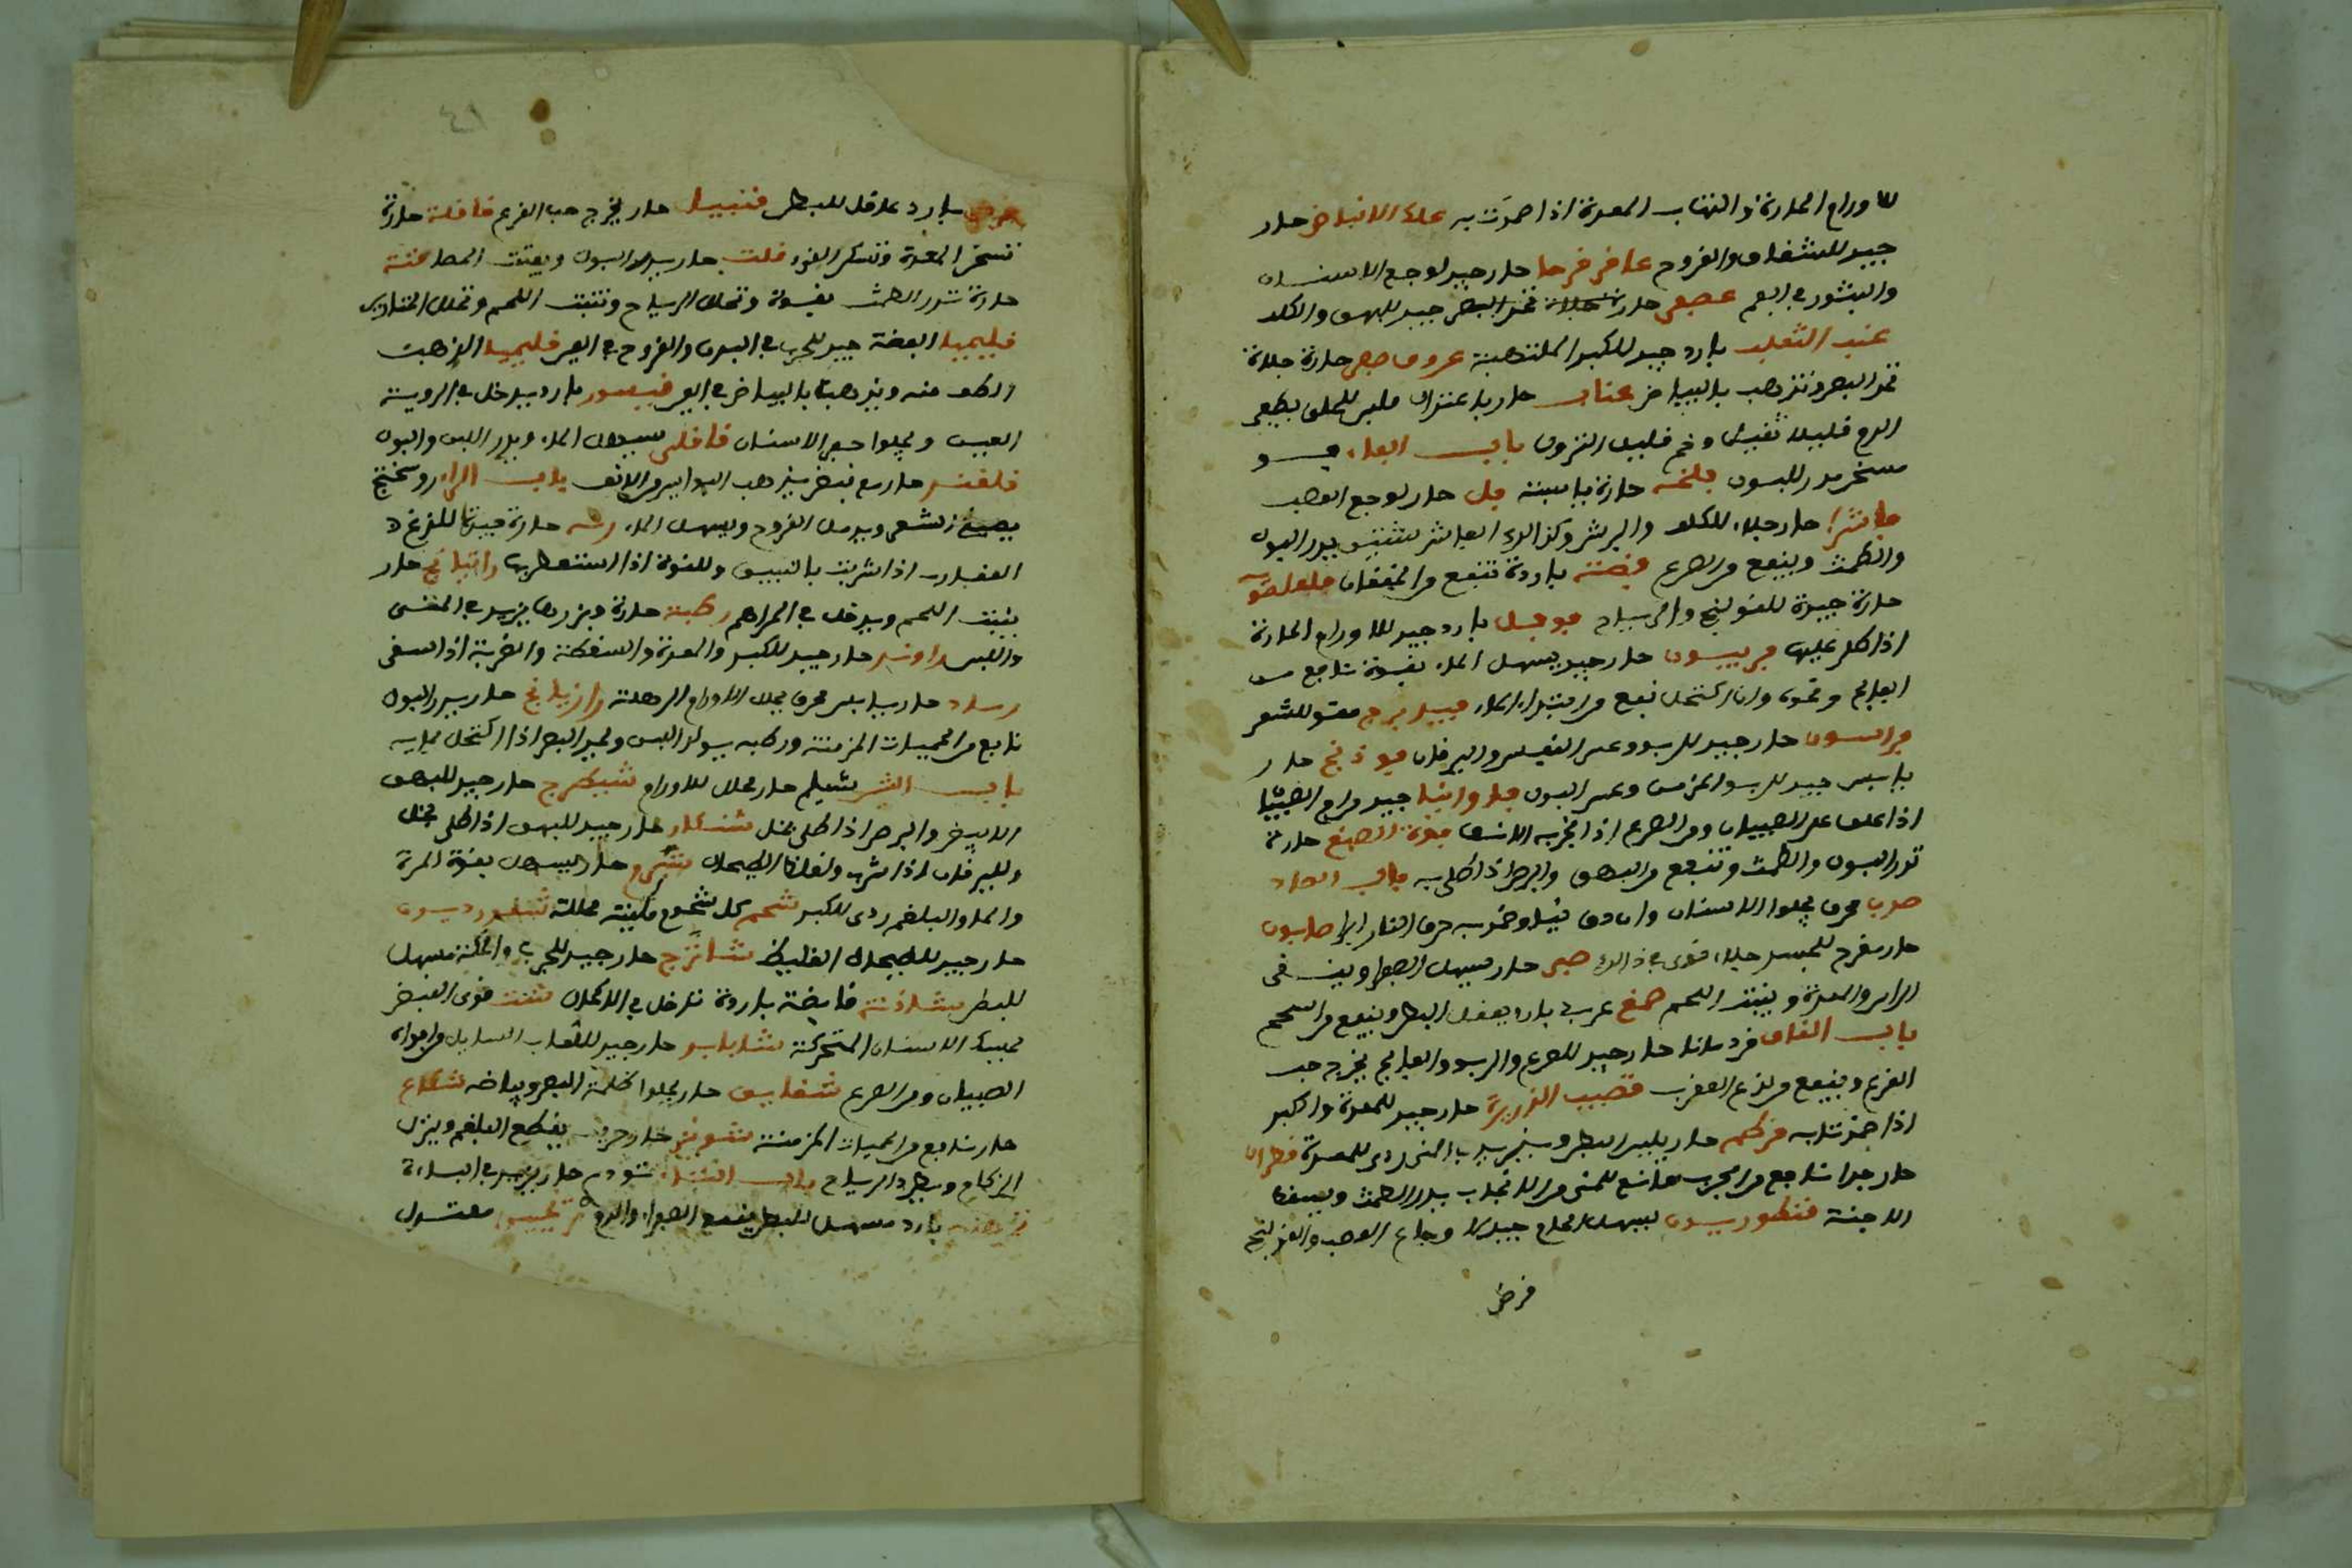 للاورام الحارة والتهاب المعدة اذا ضمدت به علك الانباط حار
جيد للشقاق والقروح عاقرقرحا حار جيد لوجع الاسنان
والبثور في الفم جيد للبهق والكلف
عنب الثعلب بارد جيد للكبد الملتهبة عروق صفر حارة جلاءة
تحد البصر وتذهب بالبياض عناب حار باعتدال ملين للحلق يطفي
الدم قليلا ثقيل وخم قليل النزول باب الفاء
مسخن مدر للبول حارة يابسة فل حار لوجع العصب
فاشرا حار جلاء للكلف والبرش وكذلك الفاشرشتين يدر البول
والطمث وينفع من الصرع فضة باردة تنفع من الخفقان فلفلمويه
حارة جيدة للقولنج والرياح فوفل بارد جيد للاورام الحارة
اذا طلي عليها فربيون حار جيد يسهل الماء بقوة نافع من
الفالج ونحوه وان اكتحل نفع من ابتداء الماء مقو للشعر
فراسيون حار جيد للربو وعسر النفس واليرقان فوذنج حار
يابس جيد للربو المزمن وعسر البول فاوانيا جيد من ام الصبيان
اذا علق على الصبيان ومن الصرع اذا تبخر به الانسان فوة الصبغ حارة
تدر البول والطمث وتنفع من البهق والبرص اذا طلي به باب الصاد
صدف محرق يجلوا الاسنان وان دق نيا وضمد به حرق النار ابرا صابون
حار مقرح للجسد جلاء قوي في ذلك صبر حار يسهل الصفرا وينقي
الراس والمعدة وينبت اللحم صمغ عربي بارد يعقل البطن وينفع من السحج
باب القاف قردمانا حار جيد للصرع والربو والفالج يخرج حب
القرع وينفع من لذع العقرب قصب الذريرة حار جيد للمعدة والكبد
اذا ضمدتا به قرطم حار يلين البطن ويزيد في المني ردي للمعدة قطران
حار جدا نافع من الجرب مانع للمني من الانجاب يدر الطمث ويسقط
الاجنة قنطوريون يسهل البلغم جيد لاوجاع العصب والقولنج
قرض
قرض بارد عاقل للبطن قنبيل حار يخرج حب القرع قاقلة حارة
تسخن المعدة وتسكن القيء قلت حار يدر البول ويفتت الحصا قنة
حارة تدر الطمث بقوة وتحلل الرياح وتنبت اللحم وتحلل الخنازير
قليميا الفضة جيد للجرب في البدن والقروح في العين قليميا الذهب
الطف منه ويذهب بالبياض في العين قيسور بارد يدخل في ادوية
العين ويجلوا الاسنان قاقلى يسهل الماء ويدر اللبن والبول
قلقند حار مع قبض يذهب البواسير من الانف باب الراء روسختج
يصبغ الشعر ويدمل القروح ويسهل الماء رته حارة جيدة للذغ
العقارب اذا شربت بالنبيذ وللقوة اذا استعط بها راتيانج حار
ينبت اللحم ويدخل في المراهم رطبة حارة وبزرها يزيد في المني
واللبن راوند حار جيد للكبد والمعدة والسقطة والضربة اذا سقي
رماد حار يابس محرق يحلل الاورام الرهلة رازيانج حار يدر البول
نافع من الحميات المزمنة ورطبه يولد اللبن ويحد البصر اذا اكتحل بمايه
باب الشين شيلم حار محلل للاورام شيطرج حار جيد للبهق
الابيض والبرص اذا طلي بخل شنجار حار جيد للبهق اذا طلي بخل
ولليرقان اذا شرب ولغلظ الطحال شبرم حار يسهل بقوة المرة
والماء والبلغم ردي للكبد شحم كل شحم ملينة محللة
حار جيد للطحال الغليظ شاهترج حار جيد للجرب والحكة مسهل
للبطن شاذنة قابضة باردة تدخل في الاكحال شب قوي القبض
يمسك الاسنان المتحركة شابابك حار جيد للعاب السايل من افواه
الصبيان ومن الصرع شقايق حار يجلوا ظلمة البصر وبياضه شكاع
حار نافع من الحميات المزمنة شونيز حار حريف يقطع البلغم ويزيل
الزكام ويطرد الرياح باب التاء تودري حار يزيد في الباءة
تمرهندي بارد مسهل للبطن يقمع الصفرا والدم ترنجبين معتدل